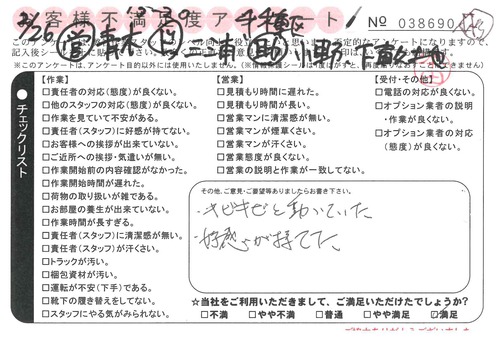 お客様不満足度アンケート
No 038690
3/26
※このアンケートは、アンケート目的以外には使用いたしません。
チェックリスト
【作業】
□責任者の対応(態度)が良くない。
□他のスタッフの対応(態度)が良くない。
□作業を見ていて不安がある。
□責任者(スタッフ)に好感が持てない。
□お客様への挨拶が出来ていない。
□ご近所への挨拶・気遣いが無い。
□作業開始前の内容確認がなかった。
□作業開始時間が遅れた。
□荷物の取り扱いが雑である。
□お部屋の養生が出来ていない。
□作業時間が長すぎる。
□責任者(スタッフ)に清潔感が無い。
□責任者(スタッフ)が汗くさい。
□トラックが汚い。
□梱包資材が汚い。
□運転が不安(下手)である。
□靴下の履き替えをしてない。
□スタッフにやる気がみられない。
【営業】
□見積もり時間に遅れた。
□見積もり時間が長い。
□営業マンに清潔感が無い。
□営業マンが煙草くさい。
□営業マンが汗くさい。
□営業態度が良くない。
□営業の説明と作業が一致してない。
【受付・その他】
□電話の対応が良くない。
□オプション業者の説明
・作業が良くない。
□オプション業者の対応
(態度)が良くない。
その他、ご意見・ご要望等ありましたらお書き下さい。
・キビキビと動いていた
・好感が持てた。
☆当社をご利用いただきまして、ご満足いただけたでしょうか?
□不満 □やや不満 □普通 □やや満足 ☑満足